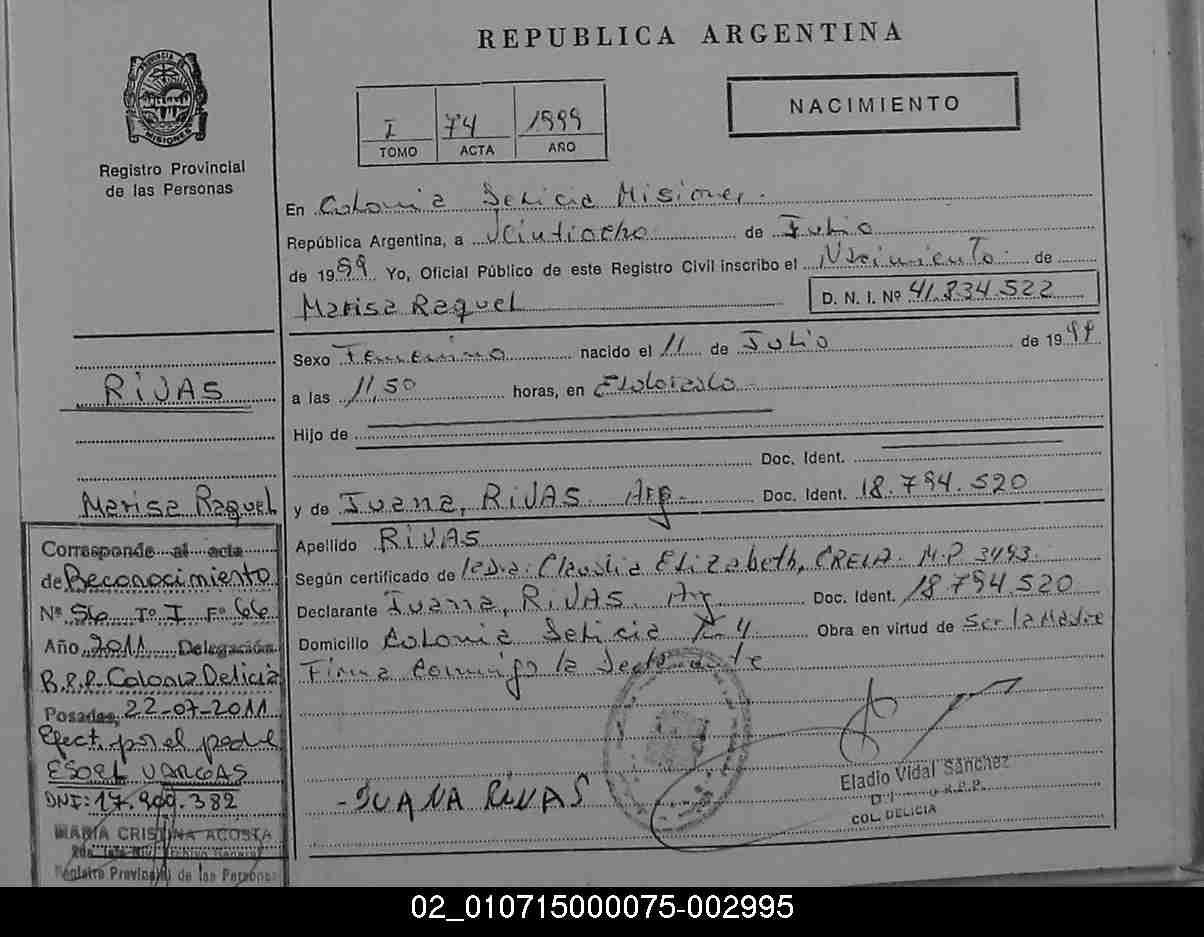 REPUBLICA ARGENTINA
PROVINCIA DE
MISIONES
Registro Provincial
de las Personas
I 74 1999
TOMO ACTA AÑO
NACIMIENTO
En Colonia Delicia Misiones.
República Argentina, a Veintiocho de Julio
de 1999 Yo, Oficial Público de este Registro Civil inscribo el Nacimiento de
Marisa Raquel D. N. I. Nº 41.834.522
Sexo Femenino nacido el 11 de Julio de 1999
a las 11,50 horas, en Eldorado
Hijo de
Doc. Ident.
y de Juana, RIVAS. Arg. Doc. Ident. 18.794.520
Apellido RIVAS
Según certificado de Claudia Elizabeth, M.P. 3493.
Declarante Juana, RIVAS. Arg. Doc. Ident. 18.794.520
Domicilio Colonia Delicia Km 4 Obra en virtud de Ser la Madre
Firma conmigo la Declarante
JUANA RIVAS
Eladio Vidal Sánchez
COL. DELICIA
RIVAS
Marisa Raquel
Corresponde al acta
de Reconocimiento
Nº 56 Tº I Fº 66
Año 2011 Delegación
R.P.P. Colonia Delicia
Posadas, 22-07-2011
Efect. por el padre
ESOEL VARGAS
DNI: 17.909.382
MARIA CRISTINA ACOSTA
Registro Provincial de las Personas
02_010715000075-002995